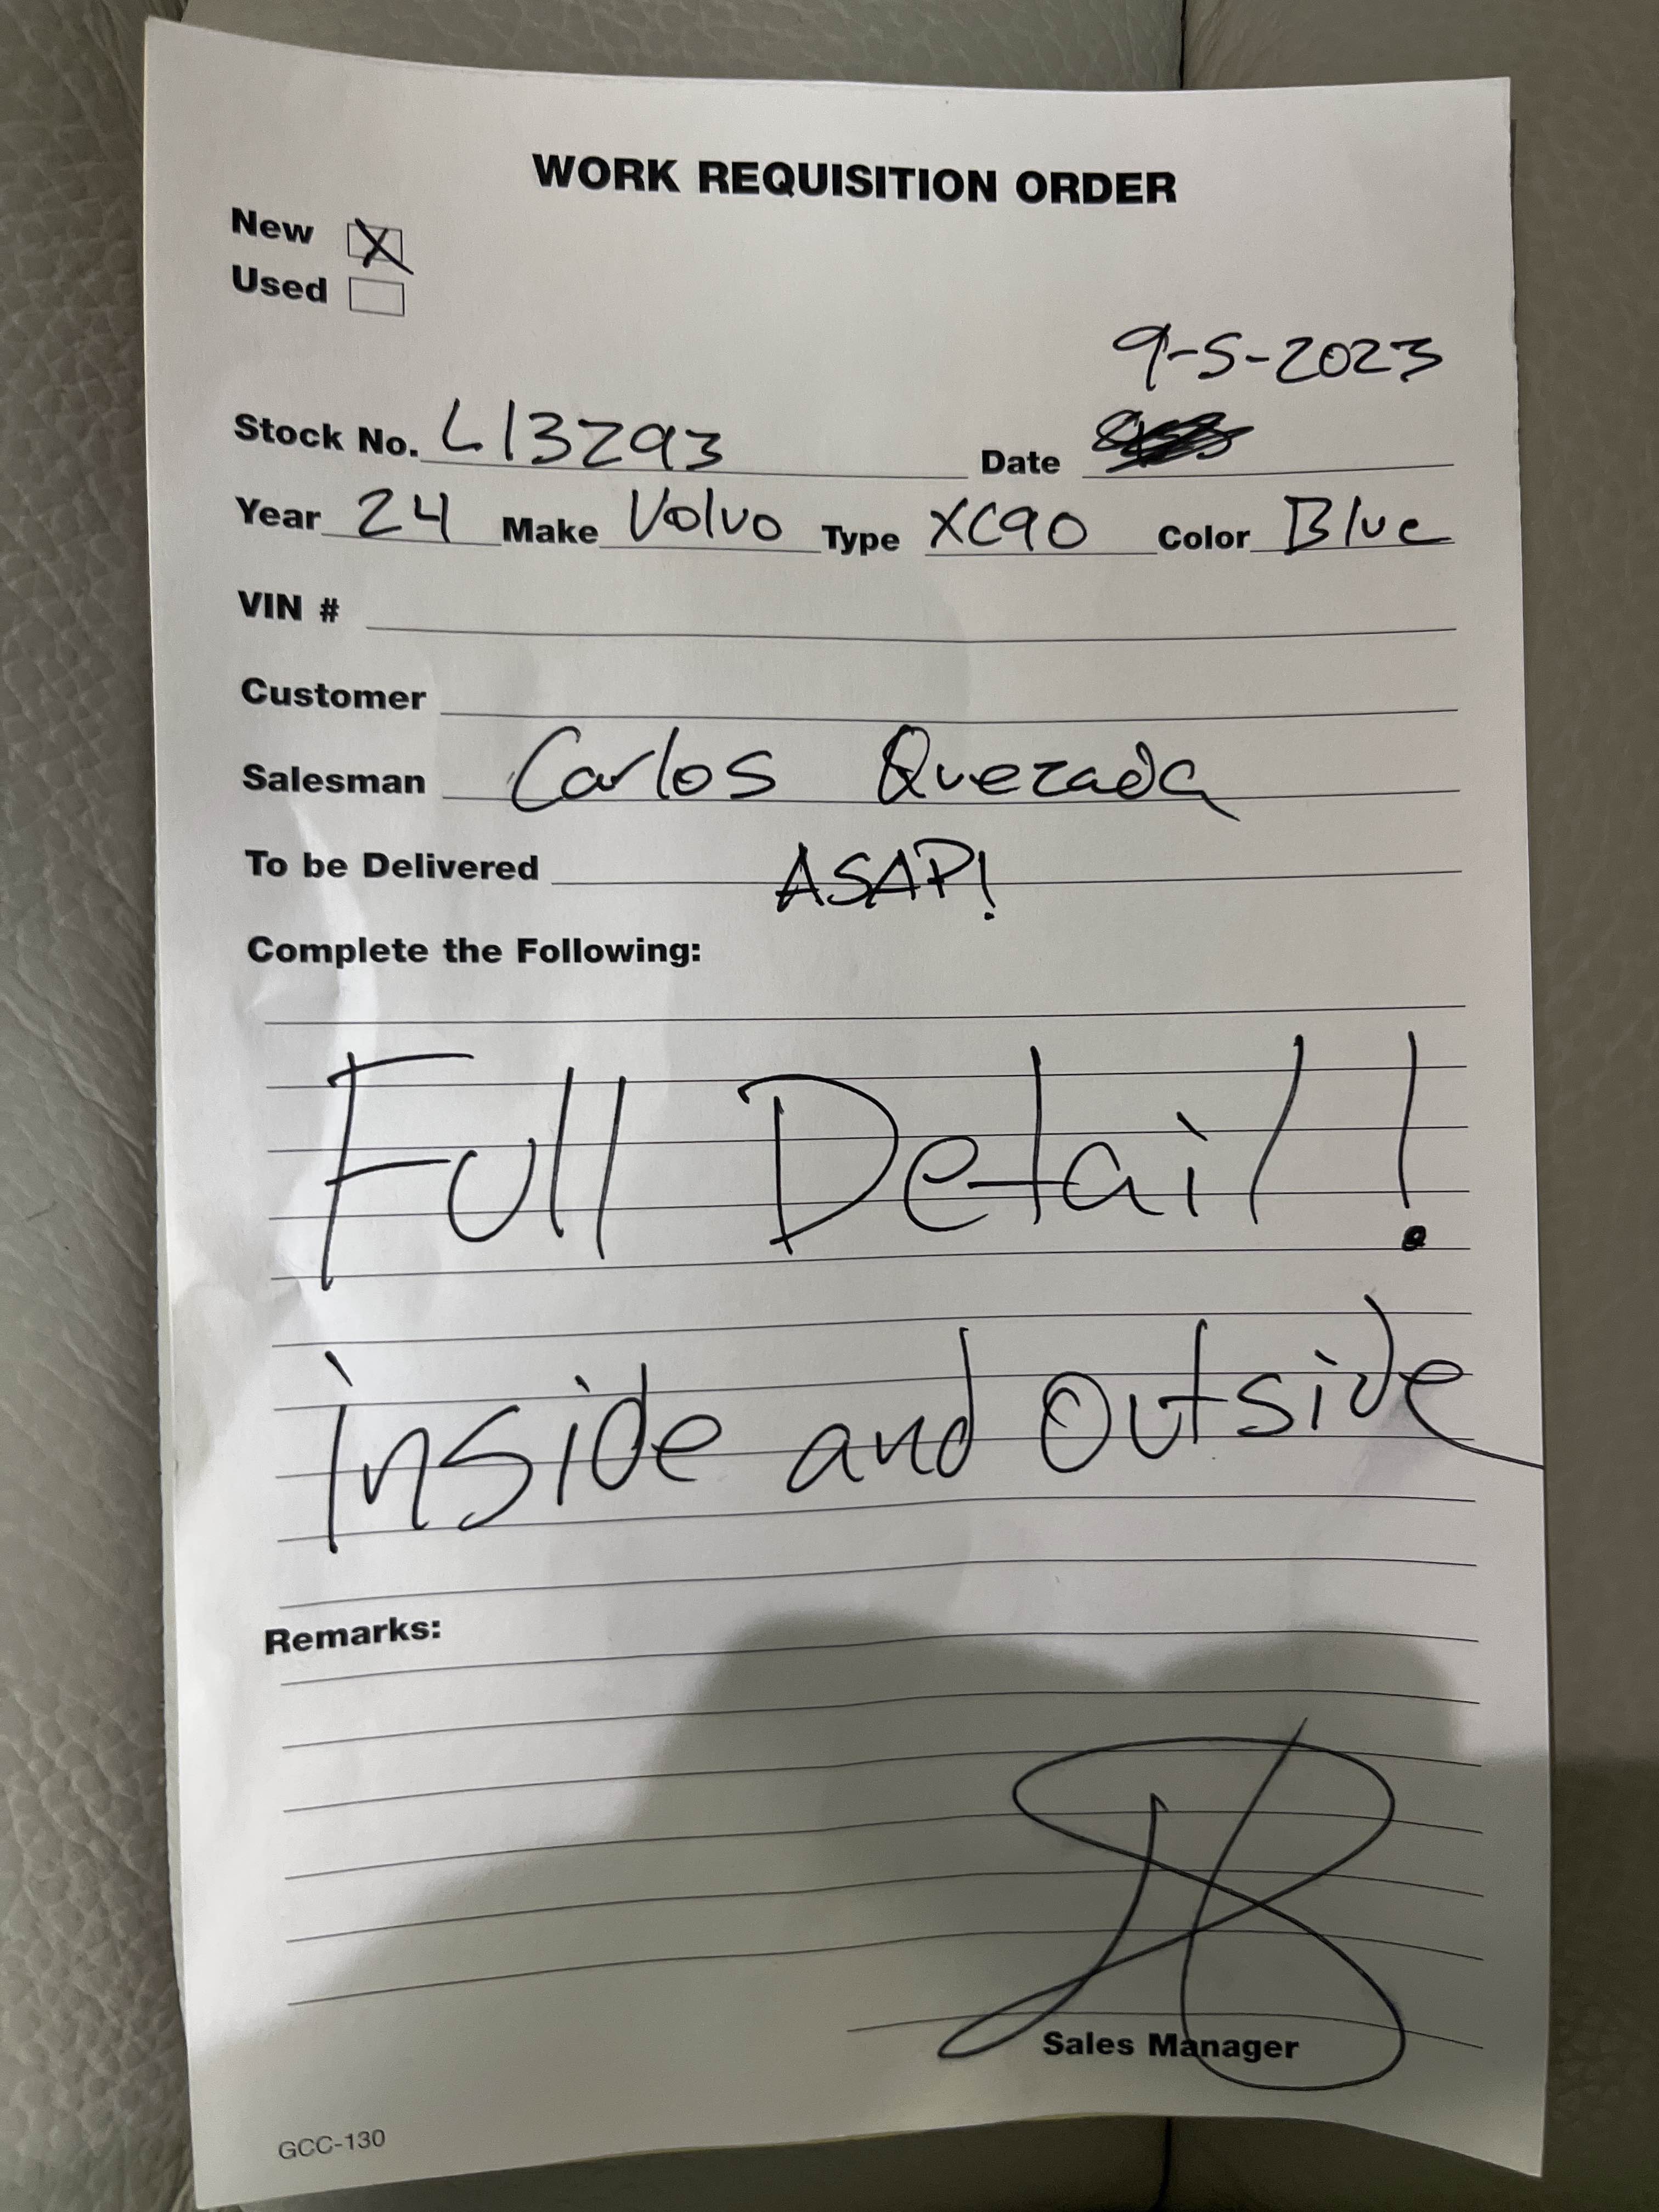 WORK REQUISITION ORDER
New X
Used
9-5-2023
Stock No. L13293 Date
Year 24 Make Volvo Type XC90 Color Blue
VIN #
Customer
Salesman Carlos Quezada
To be Delivered ASAP!
Complete the Following:
Full Detail!
inside and outside
Remarks:
Sales Manager
GCC-130